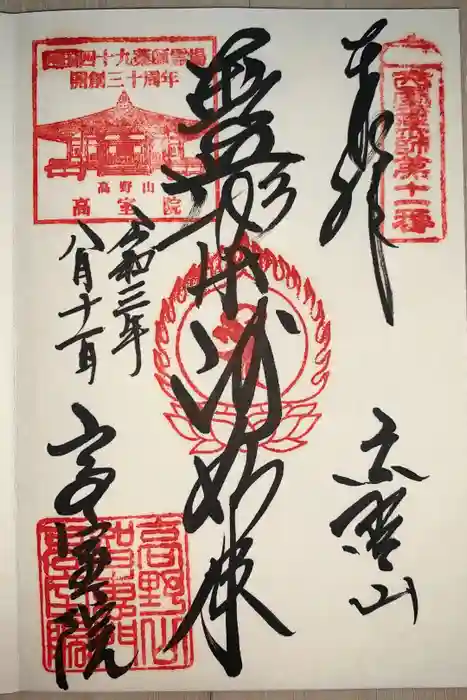 奉拝
西國薬師第十一番
高野山
如来
西国四十九薬師霊場
開創三十周年
高野山
高室院
令和三年
八月十一日
高室院